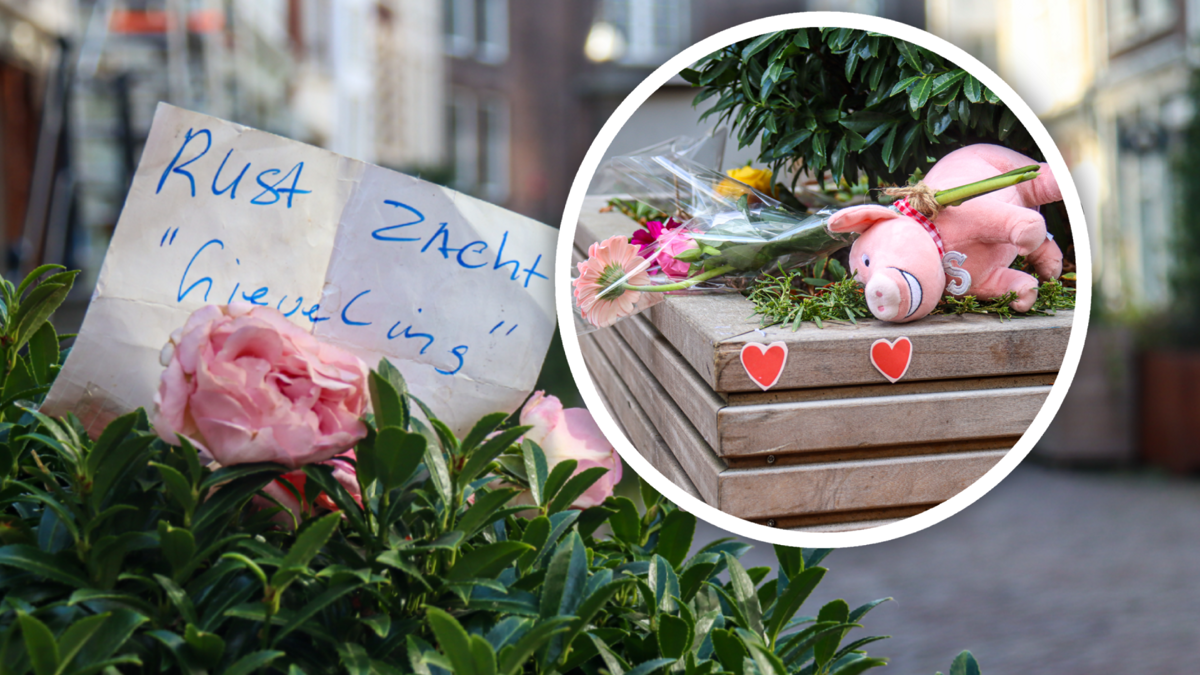 RUST ZACHT
"Lievelings"
S